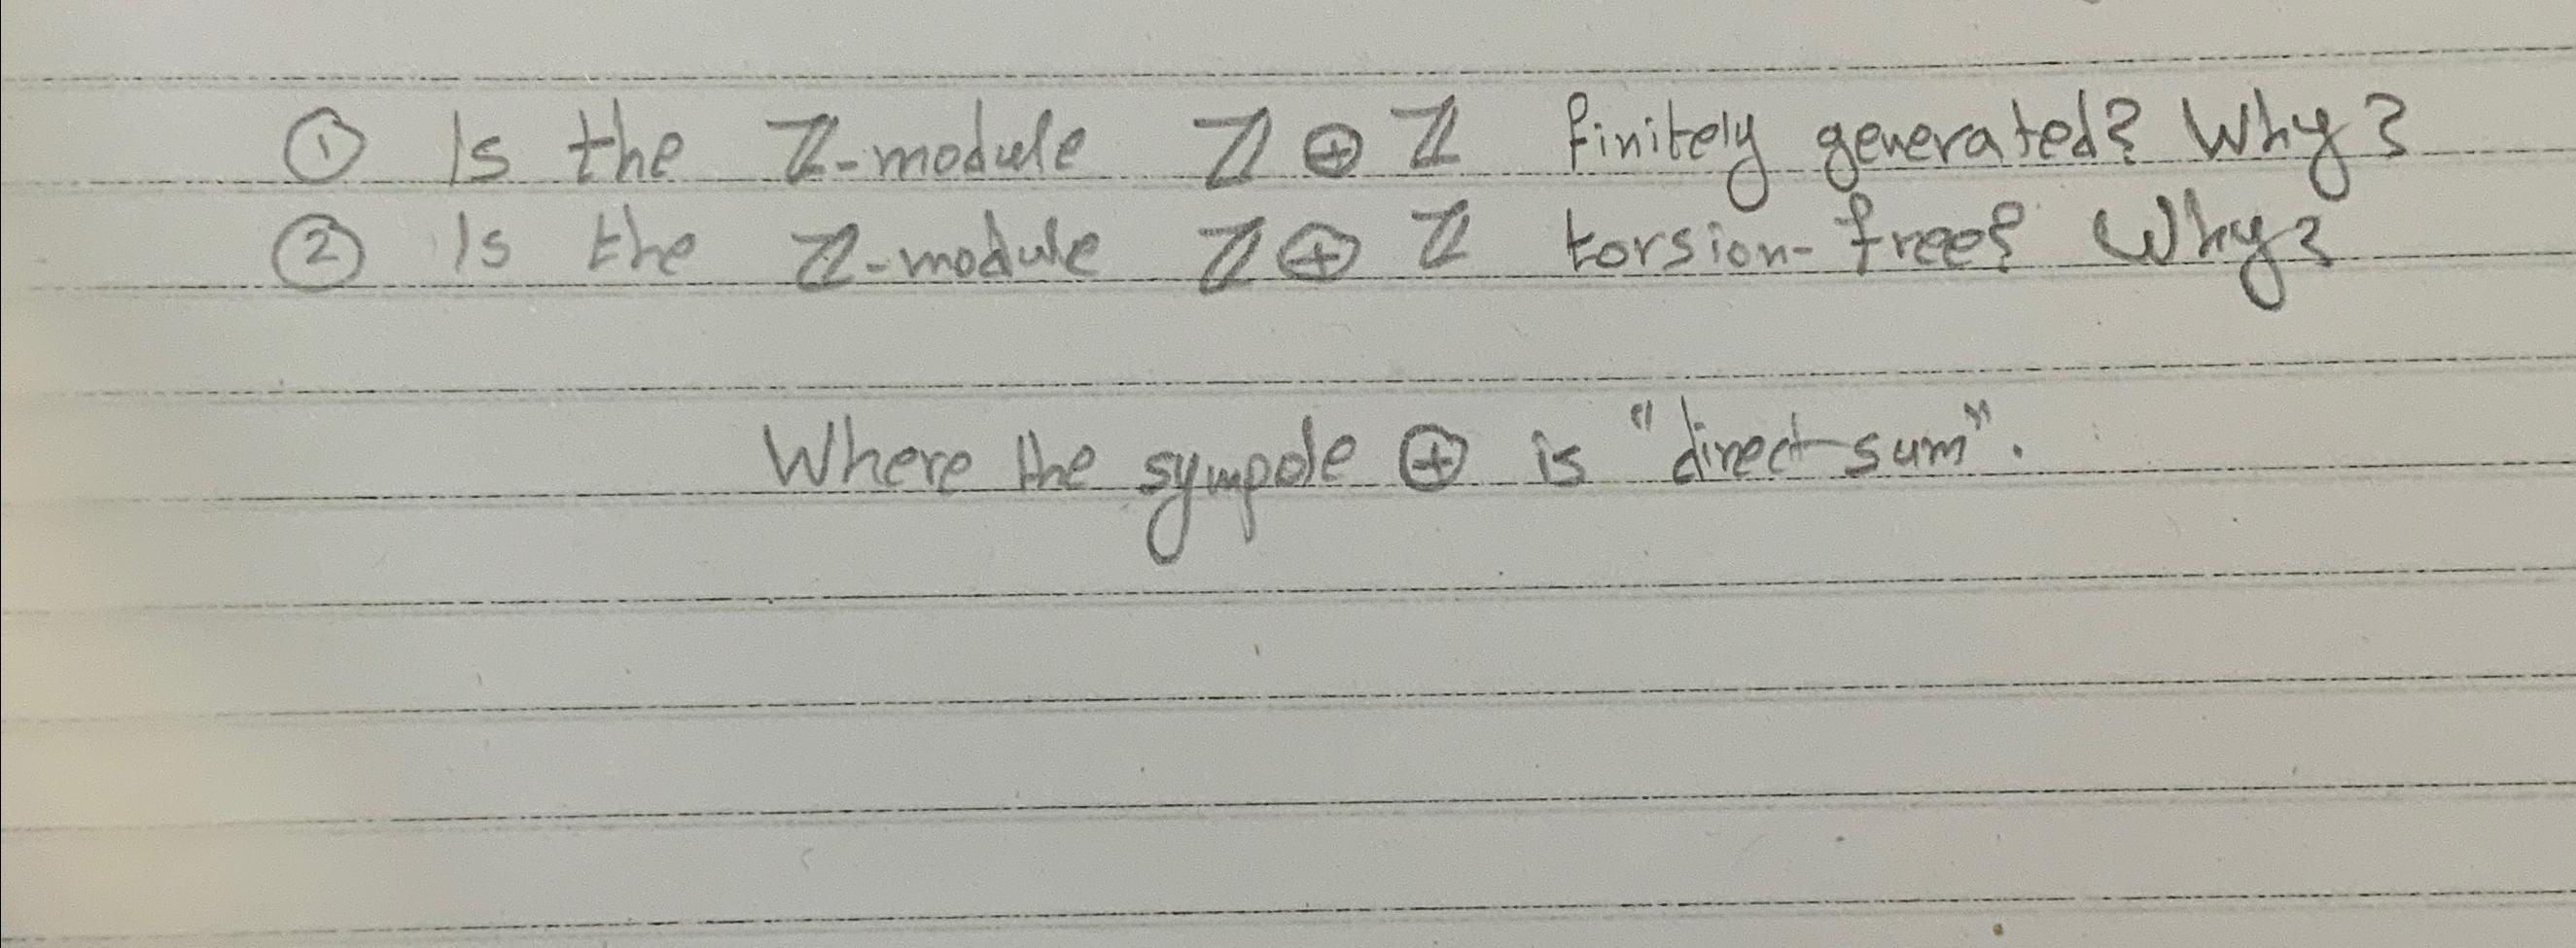 ① Is the ℤ-module ℤ ⊕ ℤ finitely generated? Why?
② Is the ℤ-module ℤ ⊕ ℤ torsion-free? Why?
Where the sympole ⊕ is "direct sum".